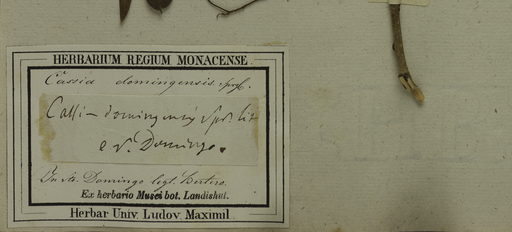 HERBARIUM REGIUM MONACENSE.
Cassia domingensis Spr.
Cassia domingensis Spr. lit
e St. Domingo.
In St. Domingo legt. Bertero.
Ex herbario Musei bot. Landishut.
Herbar Univ. Ludov. Maximil